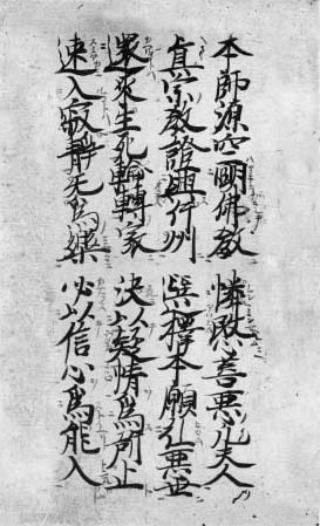 本師源空明佛教 憐愍善惡凡夫人
眞宗教證興片州 選擇本願弘惡世
還来生死輪轉家 決以疑情爲所止
速入寂靜无爲樂 必以信心爲能入